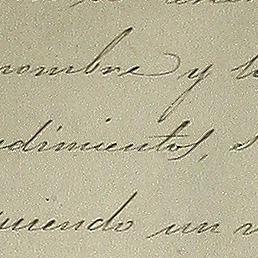 nombre y
dimientos,
uiendo un